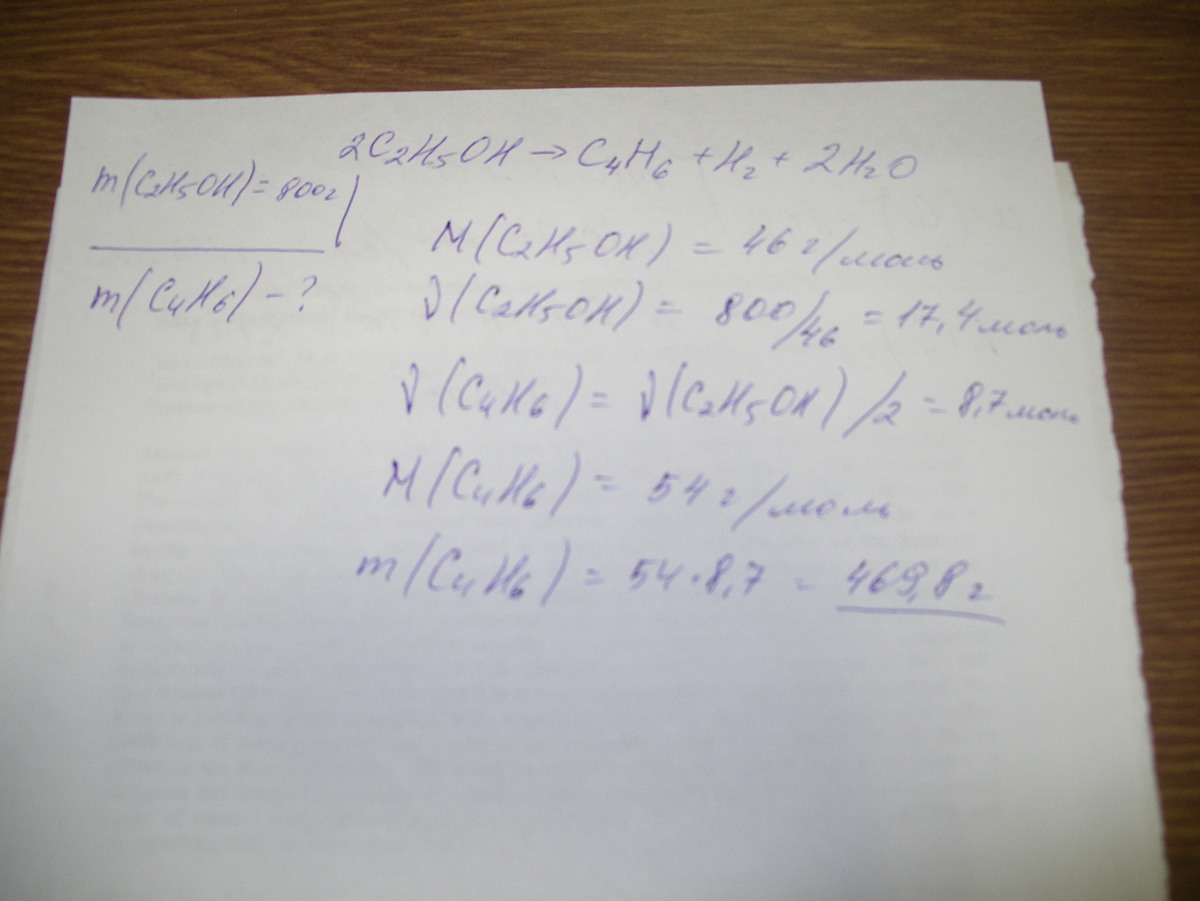 2C₂H₅OH → C₄H₆ + H₂ + 2H₂O
m(C₂H₅OH) = 800г
m(C₄H₆) - ?
M(C₂H₅OH) = 46 г/моль
ν(C₂H₅OH) = 800/46 = 17,4 моль
ν(C₄H₆) = ν(C₂H₅OH)/2 = 8,7 моль
M(C₄H₆) = 54 г/моль
m(C₄H₆) = 54 · 8,7 = 469,8 г